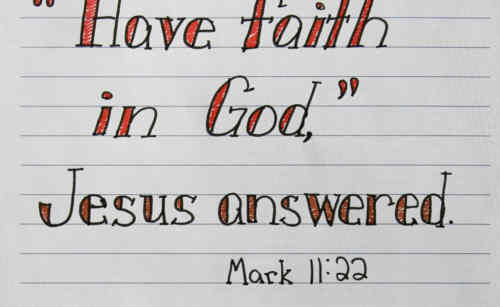 "Have faith
in God,"
Jesus answered.
Mark 11:22